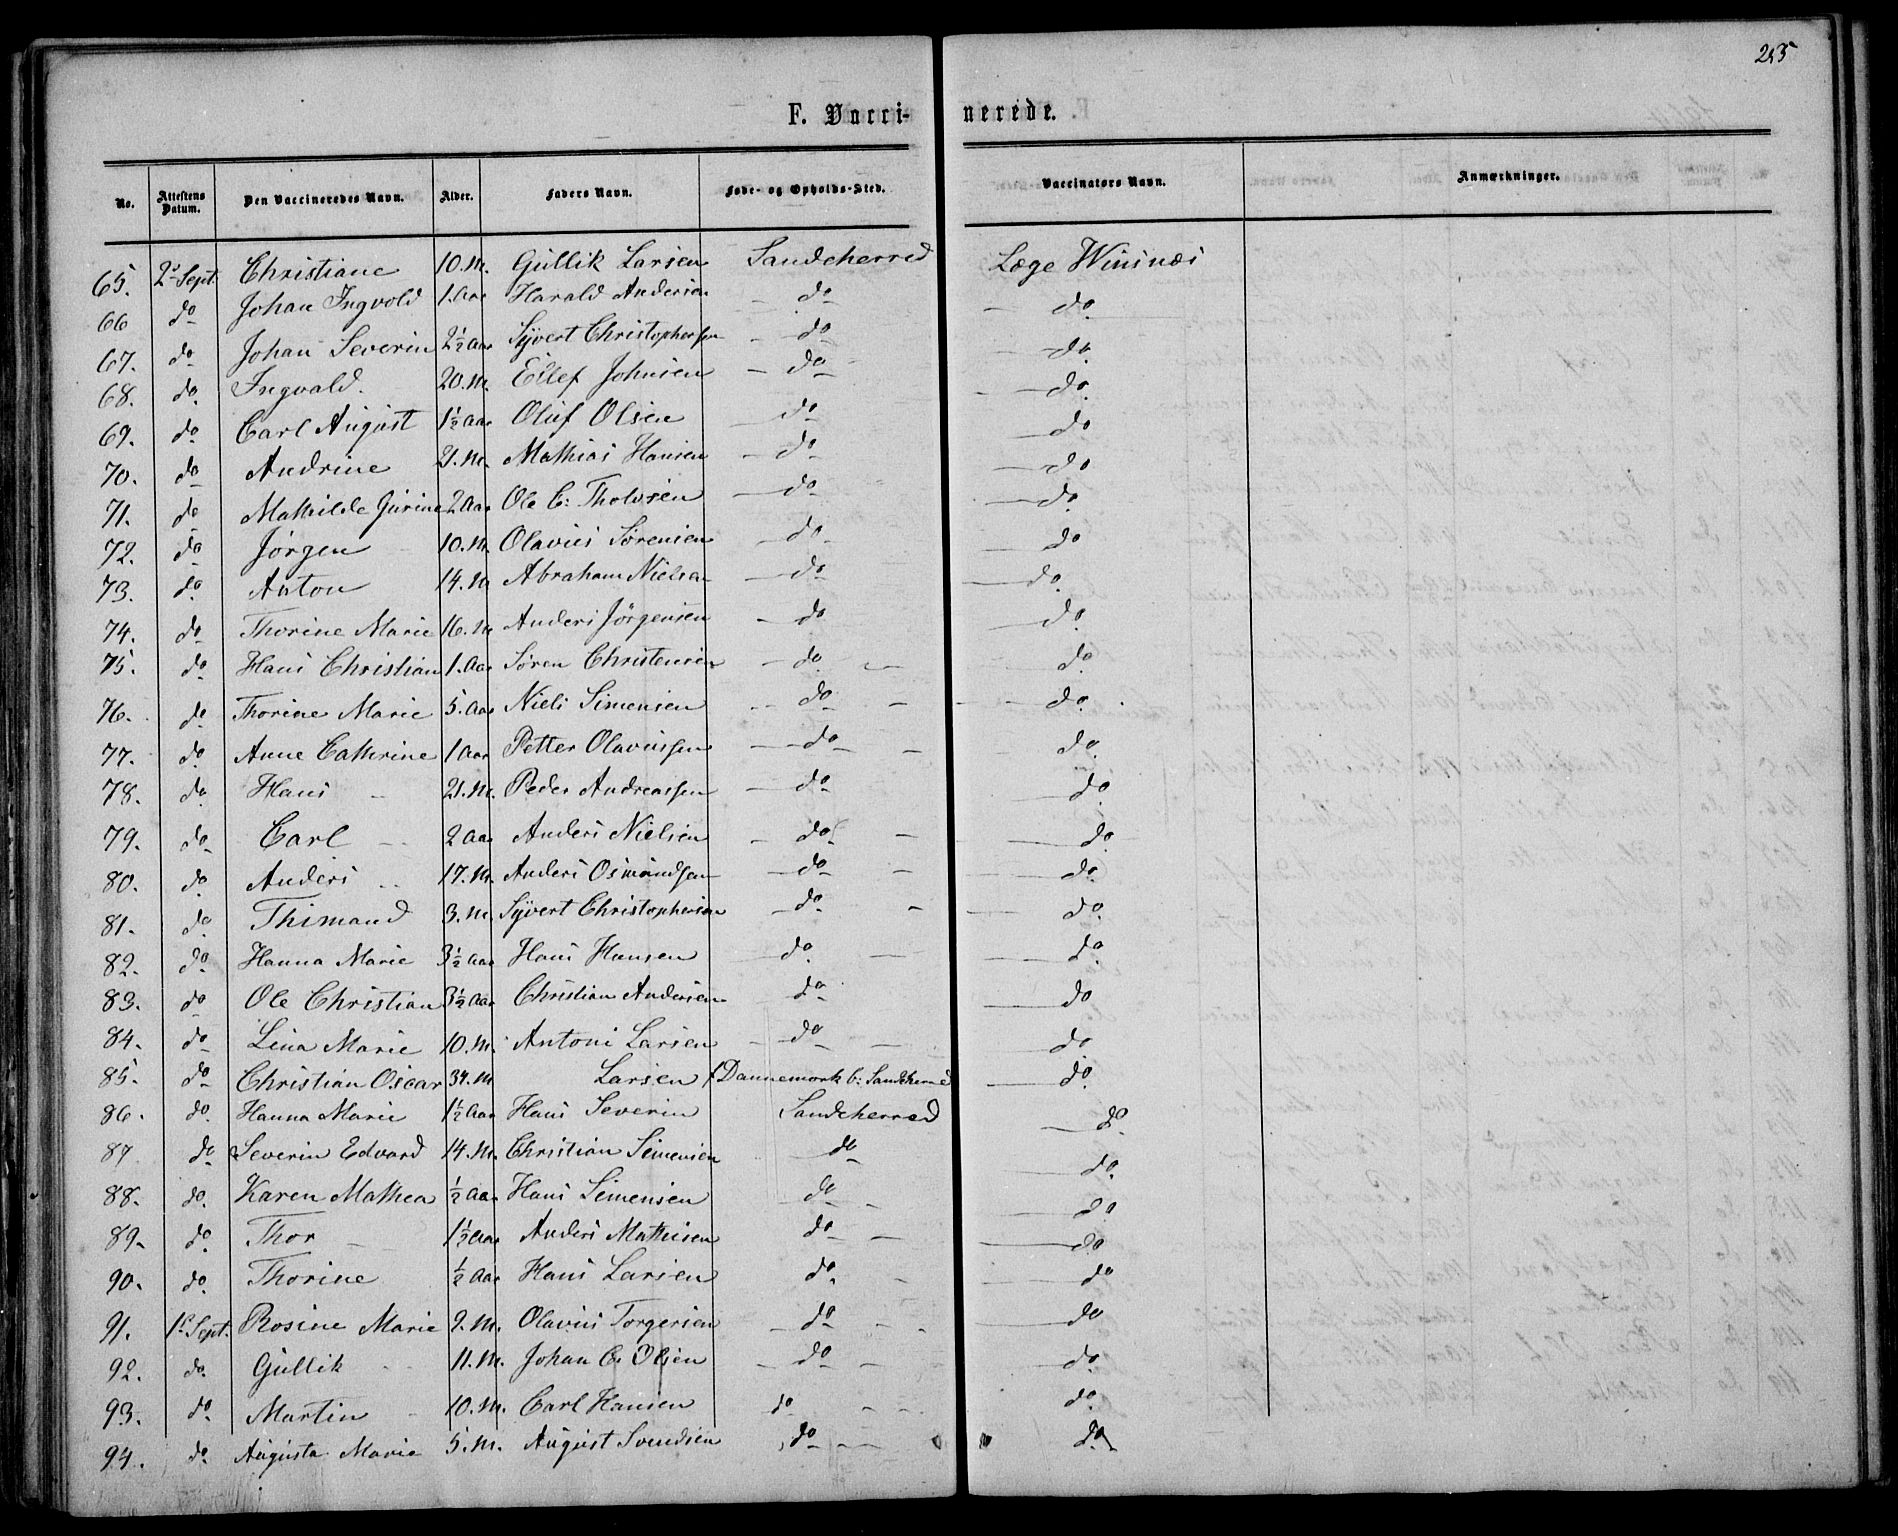 255
F. Vacci- nerede.
No. Attestens Datum. Den Vaccineredes Navn. Alder. Faders Navn. Føde- og Opholds-Sted. Vaccinators Navn. Anmærkninger.
65. 2 Sept. Christiane 10. M. Gullik Larsen Sandeherred Læge Winsnæs
66 do Johan Ingvold 1. Aar Harald Andersen do do
67. do Johan Severin 2½ Aar Syvert Christophersen do do
68. do Ingvald. 20. M. Ellef Johnsen do do
69. do Carl August 1½ Aar Oluf Olsen do do
70. do Andrine 21. M. Mathias Hansen do do
71. do Mathilde Gurine 2 Aar Ole C: Tholvsen do do
72. do Jørgen 10. M. Olavus Sørensen do do
73. do Anton 14. M Abraham Nielsen do do
74. do Thorine Marie 16. M Anders Jørgensen do do
75. do Hans Christian 1. Aar Søren Christensen do do
76. do Thorine Marie 5. Aar Niels Simensen do do
77. do Anne Cathrine 1 Aar Petter Olavussen do do
78. do Hans 21. M. Peder Andreassen do do
79. do Carl 2 Aar Anders Nielsen do do
80. do Anders 17. M. Anders Osmundsen do do
81. do Thimand 3. M. Syvert Christophersen do do
82. do Hanna Marie 3½ Aar Hans Hansen do do
83. do Ole Christian 3½ Aar Christian Andersen do do
84. do Lina Marie 10. M. Antoni Larsen do do
85. do Christian Oscar 34. M Larsen Dannemork b: Sandeherred do
86. do Hanna Marie 1½ Aar Hans Severin Sandeherred do
87 do Severin Edvard 14. M. Christian Simensen do do
88. do Karen Mathea ½ Aar Hans Simensen do do
89. do Thor 1½ Aar Anders Mathisen do do
90. do Thorine ½ Aar Hans Larsen do do
91. Sept. Rosine Marie 9. M. Olavus Torgersen do do
92. do Gullik 11. M. Johan C. Olsen do do
93. do Martin 10. M. Carl Hansen do do
94. do Augusta Marie 5. M. August Svendsen do do